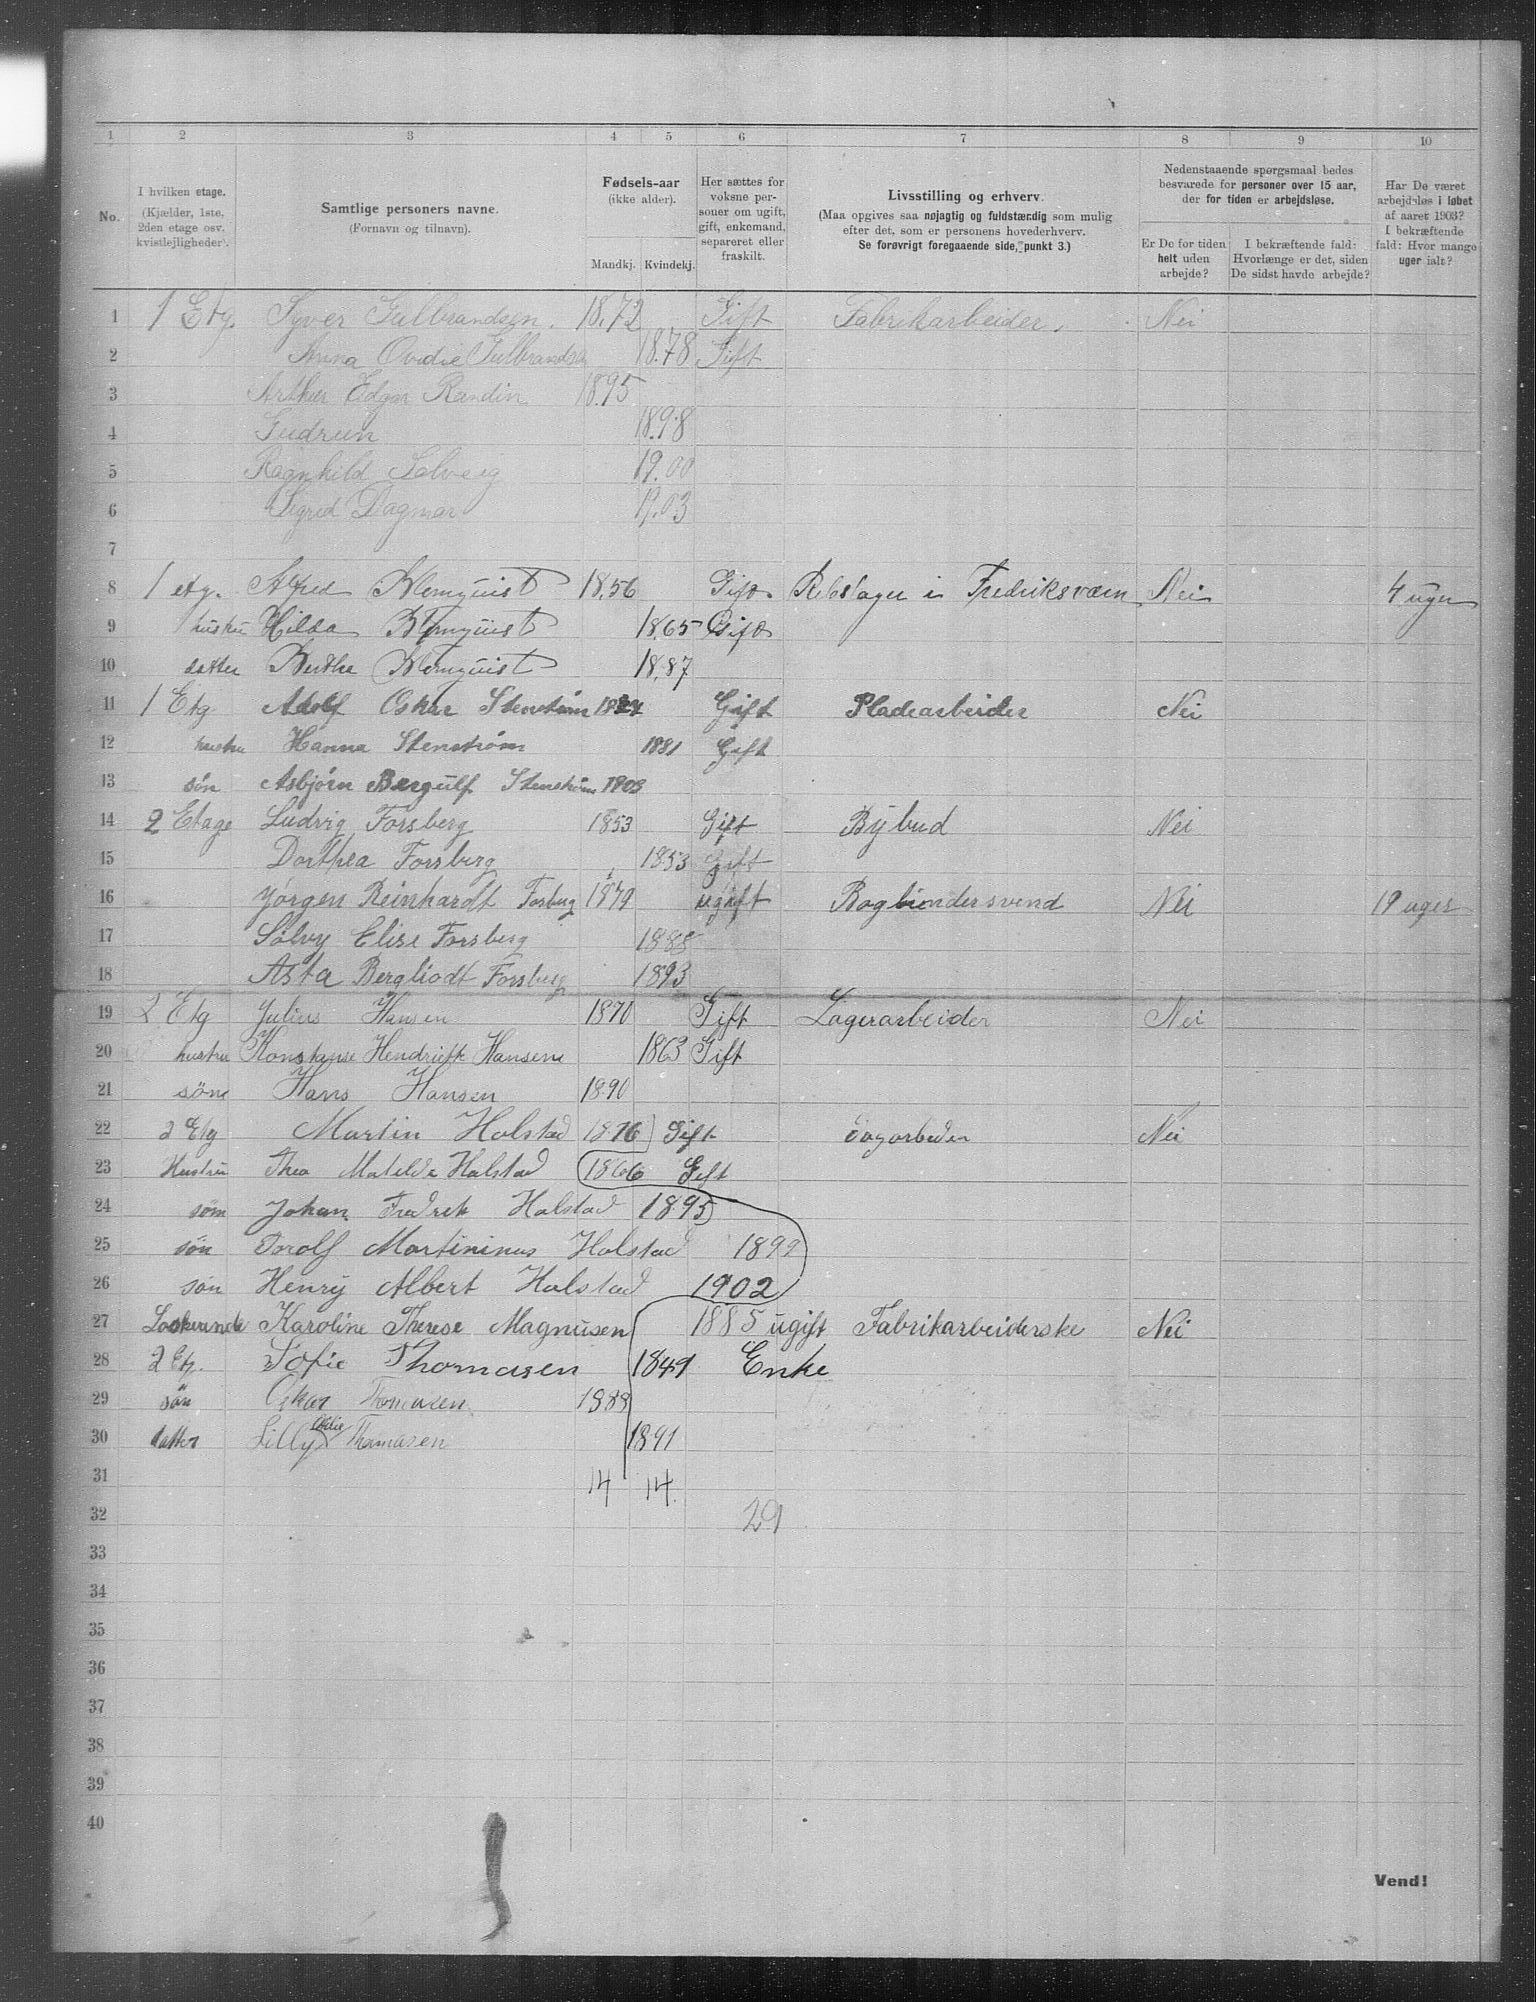 1 2 3 4 5 6 7 8 9 10
No.
I hvilken etage.
(Kjælder, 1ste,
2den etage osv.
kvistlejligheder).
Samtlige personers navne.
(Fornavn og tilnavn).
Fødsels-aar
(ikke alder).
Mandkj. Kvindekj.
Her sættes for
voksne per-
soner om ugift,
gift, enkemand,
separeret eller
fraskilt.
Livsstilling og erhverv.
(Maa opgives saa nøjagtig og fuldstændig som mulig
efter det, som er personens hovederhverv.
Se forøvrigt foregaaende side, punkt 3.)
Nedenstaaende spørgsmaal bedes
besvarede for personer over 15 aar,
der for tiden er arbejdsløse.
Er De for tiden
helt uden
arbejde?
I bekræftende fald:
Hvorlænge er det, siden
De sidst havde arbejde?
Har De været
arbejdsløs i løbet
af aaret 1903?
I bekræftende
fald: Hvor mange
uger ialt?
1 1 Etg. Syver Gulbrandsen. 1872 Gift Fabrikarbeider. Nei
2 Anna Ovidie Gulbrandsen 1878 Gift
3 Arthur Edgar Randin 1895
4 Gudrun 1898
5 Ragnhild Solveig 1900
6 Sigrid Dagmar 1903
7
8 1 etg. Alfred Blomquist 1856 Gift Rebslager i Fredriksværn Nei 4 uger
9 hustru Hilda Blomquist 1865 Gift
10 datter Bertha Blomquist 1887
11 1 Etg Adolf Oskar Stenstrøm Gift Pladearbeider Nei
12 hustru Hanna Stenstrøm 1881 Gift
13 søn Asbjørn Bergulf Stenstrøm 1903
14 2 Etage Ludvig Forsberg 1853 Gift Bybud Nei
15 Dorthea Forsberg 1853 Gift
16 Jørgen Reinhardt Forsberg 1879 ugift Bogbindersvend Nei 19 uger
17 Solvy Elise Forsberg 1888
18 Asta Bergliodt Forsberg 1893
19 2 Etg Julius Hansen 1870 Gift Lagerarbeider Nei
20 hustru Konstanse Hendrikke Hansen 1863 Gift
21 søn Hans Hansen 1890
22 2 Etg Martin Holstad 1876 Gift Nei
23 Hustru Thea Matilde Holstad 1866 Gift
24 søn Johan Fredrek Holstad 1895
25 søn Torolf Martininus Holstad 1899
26 søn Henry Albert Holstad 1902
27 Losherende Karoline Therese Magnusen 1885 ugift Fabrikarbeiderske Nei
28 2 Etg. Sofie Thomasen 1849 Enke
29 søn Oskar Thomasen 1888
30 datter Lilly Thomasen 1891
31 14 14.
32 29
33
34
35
36
37
38
39
40
Vend!